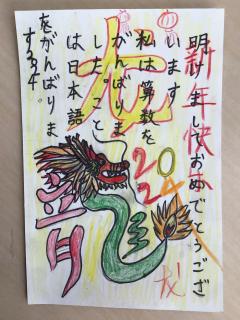 明けましておめでとうござ
います
私は算数を
がんばりま
した。ことし
は日本語
をがんばりま
新年快乐
龙
2024
龙